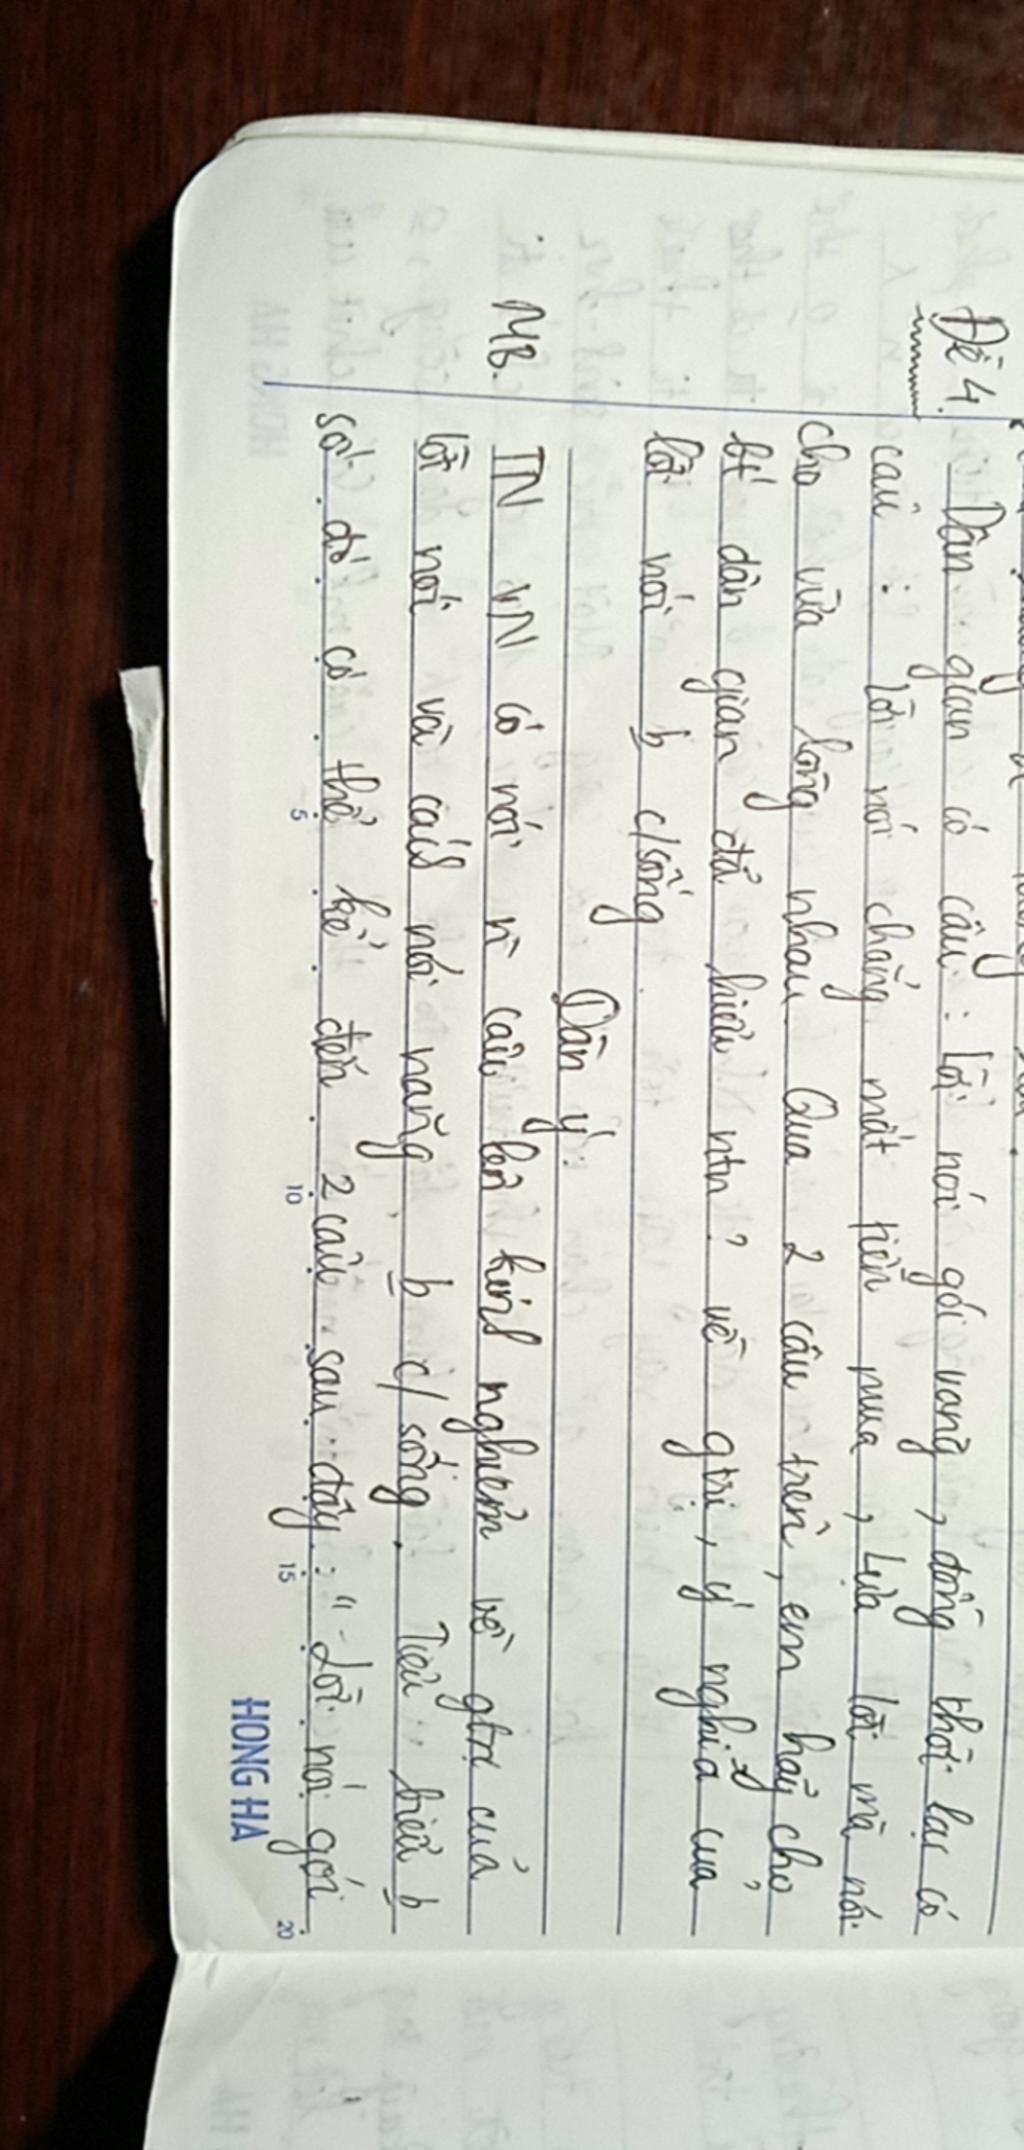 Đề 4. Dân gian có câu: Lời nói gói vàng, đồng thời lại có
câu: Lời nói chẳng mất tiền mua, Lựa lời mà nói
cho vừa lòng nhau. Qua 2 câu trên, em hãy cho
bt dân gian đã hiểu ntn? về gtrị, ý nghĩa của
lời nói b c/sống.
Dàn ý:
MB. TN VN có nói n câu lên kinh nghiệm về gtrị của
lời nói và cách nói năng b c/sống. Tiêu biểu b
số đó có thể kể đến 2 câu sau đây: "Lời nói gói
5 10 15 20
HONG HA